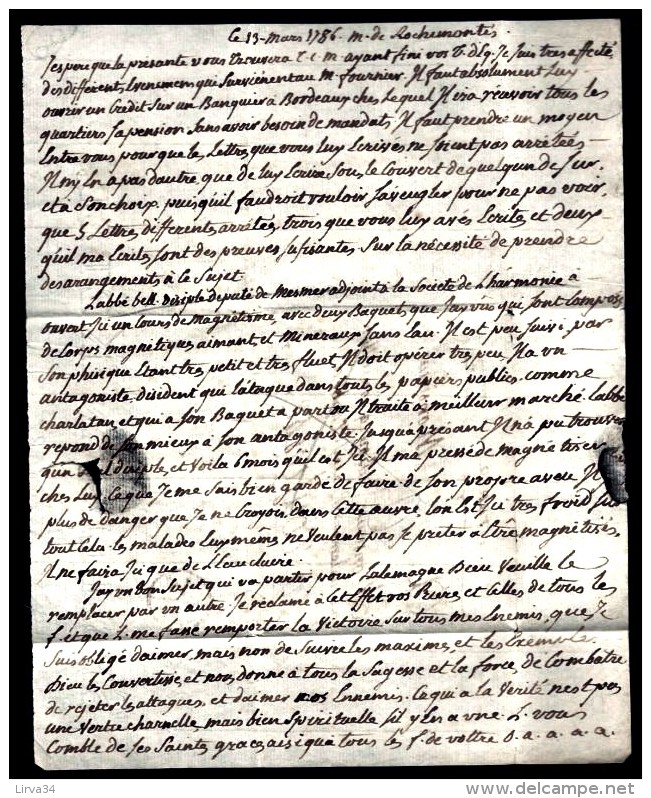 Ce 13 Mars 1786. M. de Rochemontés.
J'espere que la presante vous trouvera T. C. M. ayant fini vos Je suis tres affecté
des différents Evenemens qui Surviénent au M. fournier. Il faut absolument luy
ouvrir un Credit Sur un Banquier à Bordeaux ches lequel Il ira récevoir tous les
quartiers Sa pension Sans avoir besoin de mandats, Il faut prendre un moyen
Entre vous pour que les Lettres que vous luy Ecrives ne Soient pas arretées
Il n'y En a pas d'autre, que de luy Ecrire Sous le Couvert de quelqun de Sur,
et à Son choix, puisqu'il faudroit vouloir S'aveugler pour ne pas voir,
que 5 Lettres différents arretées, trois que vous luy avés Ecrites et deux
qu'il m'a Ecrites Sont des preuves Sufisantes Sur la nécéssité de prendre
des arangements à Ce Sujet.
L'abbé bell. disciple deputé de Mesmer adjoint à la Societé de L'harmonie a
ouvert Ici un Cours de Magnétisme, avec deux Baquets que J'ay vus qui Sont Composés
de Corps magnétiques aimant et Mineraux Sans Eau. Il est peu Suivi, par
Son phisique Etant tres petit et tres fluet, Il doit opérer tres peu, Il a un
antagoniste, disident qui l'ataque dans touts les papiers publics. Comme
charlatan, et qui a Son Baquet a part ou Il traite à meilleur marché. L'abbé
repond de Son mieux à Son antagoniste. Jusqu'à présant Il n'a pu trouver
qun et Voila 6 mois qu'il est Ici. Il m'a pressé de magnétiser
ches Luy. Ce que Je me Suis bien garde de faire. de Son propre aveu Il
plus de danger que Je ne Croyois dans Cette œuvre, l'on Est Ici tres froid Sur
tout Cela. les malades Eux mêms ne Veulent pas Se preter à Etre magnétisés.
Il ne faira Ici que de L'Eau claire.
J'ay un bon Sujet qui va partir pour L'alemagne Dieu Veuille le
remplacer par un autre. Je réclame à Cet Effet vos Prieres et Celles de tous les
f. et que L. me fasse remporter la Victoire Sur tous mes Enemis, que Je
Suis obligé d'aimer, mais non de Suivre les maximes, et les
Dieu les Couvertisse, et nous donne à tous la Sagesse et la force de Combatre
de rejeter les attaques, et d'aimer nos Ennemis. Ce qui a la Verité n'est pas
une Vertu charnelle, mais bien Spirituelle S'il y En a une. L. vous
Comble de Ses Saintes graces ainsi que tous les f. de vottre O. a. a. a. a.
Lirva34
www.delcampe.net